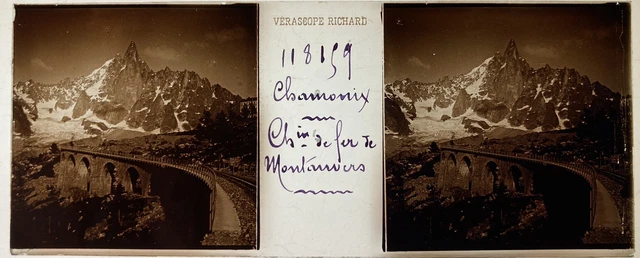 VÉRASCOPE RICHARD
118159
Chamonix
Chin de fer de
Montanvers